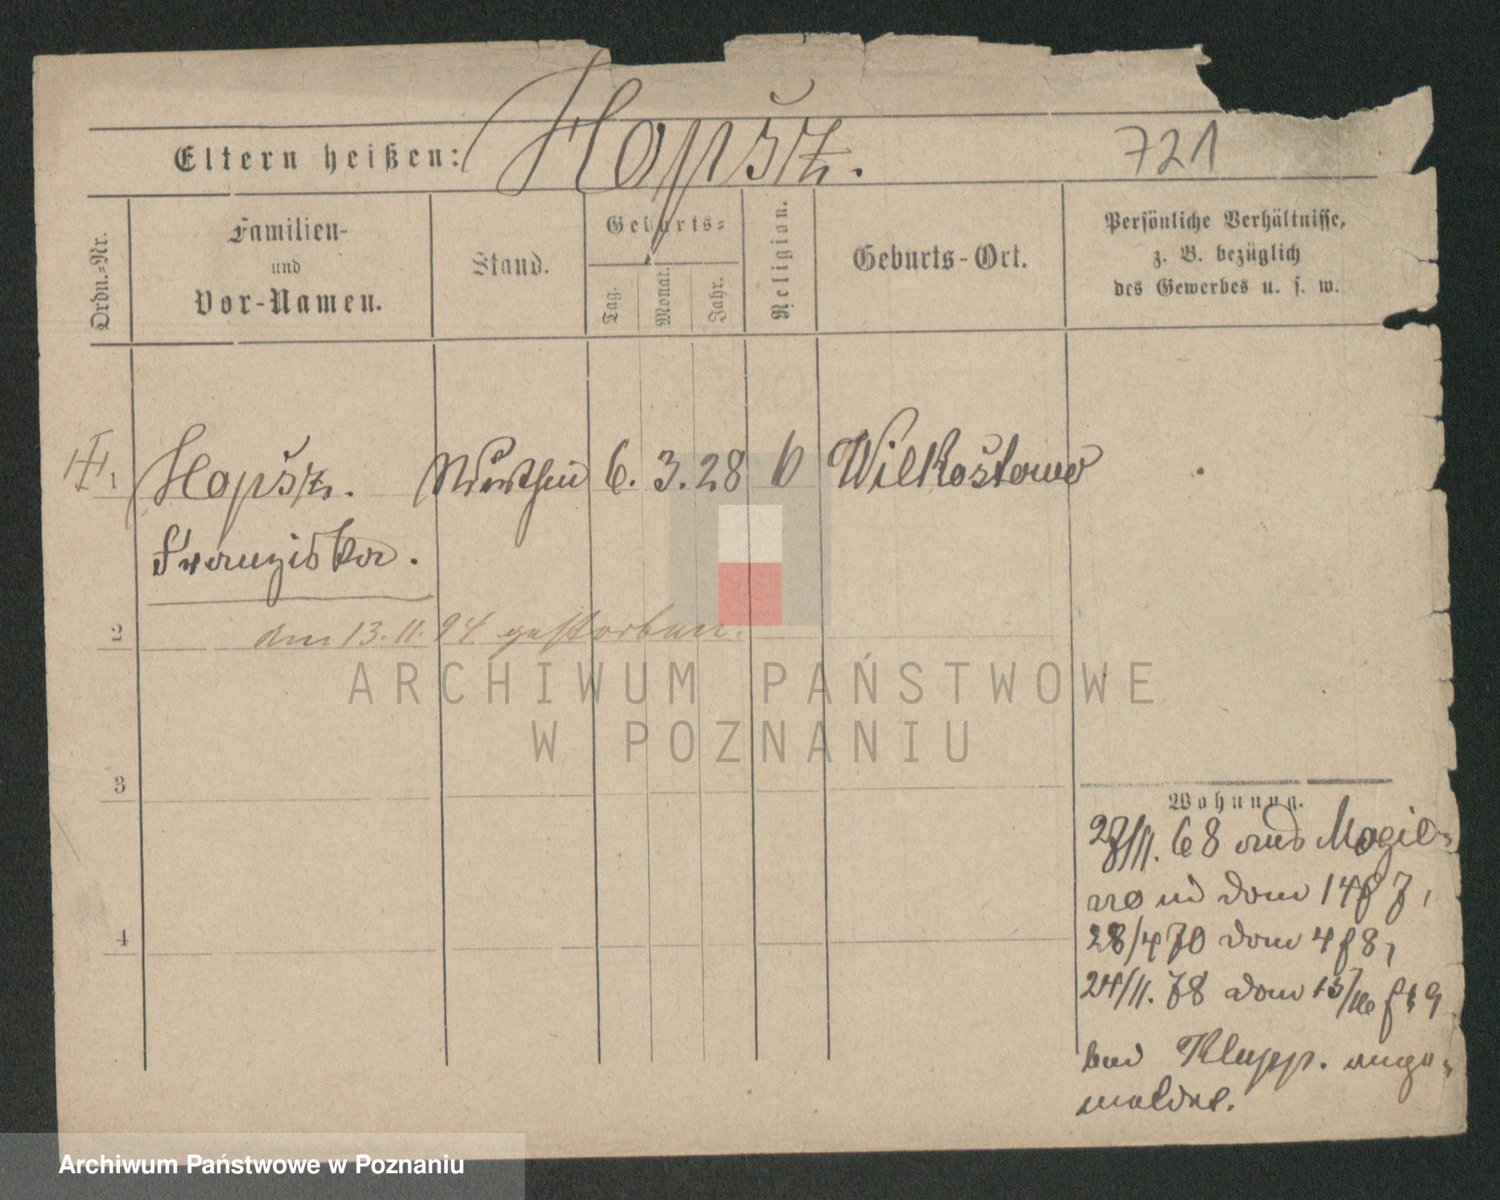 Eltern heißen: Hopŝz. 721
Ordn.-Nr.
Familien-
und
Vor-Namen.
Stand.
Geburts-
Tag.
Monat.
Jahr.
Religion.
Geburts-Ort.
Persönliche Verhältnisse,
z. B. bezüglich
des Gewerbes u. s. w.
1 Hopŝz. 6. 3. 28 Wilkostowo
Franziska.
2 am 13. 11. 94 gestorben.
3
4
Wohnung.
27/11. 68 aus Mogil-
no in dom
28/4 70 dom 4
24/11. 78 dom
bei Klupp. ange-
meldet.
ARCHIWUM PAŃSTWOWE
W POZNANIU
Archiwum Państwowe w Poznaniu